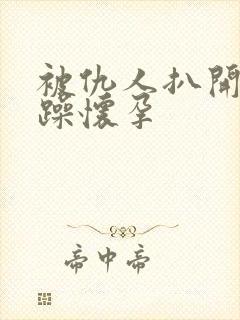 被仇人扒開
躁懷孕
帝中帝